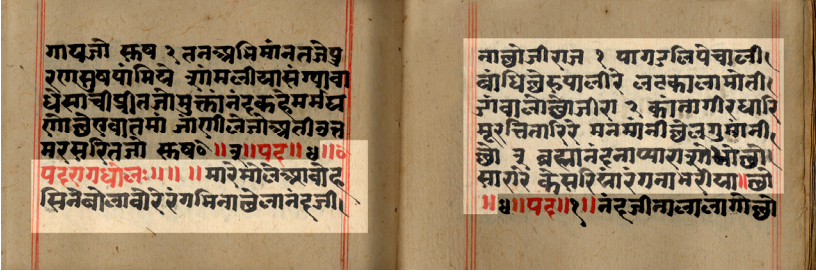 गायजो स्तष २ तनअभिमांनतजेपु
रणसुषपांमिये रांमलीयासंग्याचा
धेसाचीप्रीतजो मुक्तानंदकहेममघ
णोछेएवातमां जांणीलेजोअतीवत्त
मरसरितजो स्तष॰ ॥ ३ ॥ पद ॥ ४ ॥
पदरागधोल: ॥ ॥ ॥ मारेमोलेआवोह
सिनेबोलावोरेरंगभिनाछेलानंदजी।
नाछोजीराज १ पागहलिपेचाली।
बांधिछेरुपालीरे लटकालामोती।
जांवालोछोजीरा २ कानागीरधारि
मूरतितारिरे मनमांनीछेलगुमांनी।
छो ३ ब्रह्मानंदनाप्यारा
सारारे केसरियारंगनाभरीया॥छो
॥ ४ ॥ पद ॥ १ ॥ नंदजीनालालागोछो